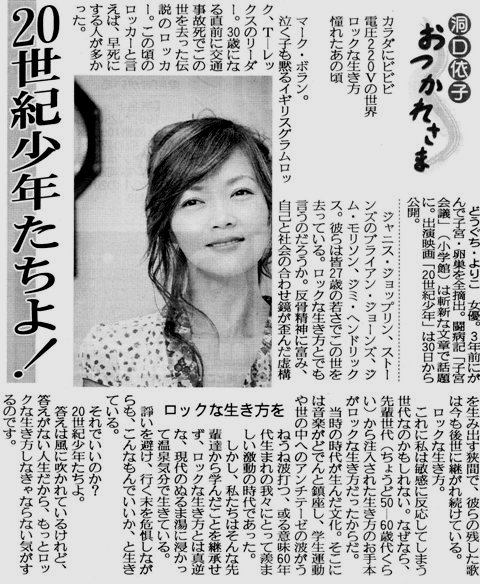 洞口依子
おつかれさま
20世紀少年たちよ！
カラダにビビビ
電圧220Vの世界
ロックな生き方
憧れたあの頃
マーク・ボラン。
泣く子も黙るイギリスグラムロッ
ク、T－レッ
クスのリーダ
ー。30歳にな
る直前に交通
事故死でこの
世を去った伝
説のロッカ
ー。この頃の
ロッカーと言
えば、早死に
する人が多か
った。
どうぐち・よりこ　女優。3年前にが
んで子宮・卵巣を全摘出。闘病記「子宮
会議」（小学館）は斬新な文章で話題
に。出演映画「20世紀少年」は30日から
公開。
ジャニス・ジョップリン、ストー
ンズのブライアン・ジョーンズ、ジ
ム・モリソン、ジミ・ヘンドリック
ス。彼らは皆27歳の若さでこの世を
去っている。ロックな生き方とでも
言うのだろうか。反骨精神に富み、
自己と社会の合わせ鏡が歪んだ虚構
を生み出す狭間で、彼らの残した歌
は今も後世に継がれ続けている。
ロックな生き方。
これに私は敏感に反応してしまう
世代なのかもしれない。なぜなら、
先輩世代（ちょうど50―60歳代くら
い）から注入された生き方のお手本
がロックな生き方だったからだ。
当時の時代が生んだ文化。そこに
は音楽がどでんと鎮座し、学生運動
や世の中へのアンチテーゼの波がう
ロックな生き方を
ねうね波打つ、或る意味60年
代生まれの我々にとって羨ま
しい激動の時代であった。
しかし、私たちはそんな先
輩達から学んだことを継承せ
ず、ロックな生き方とは真逆
な、現代のぬるま湯に浸かっ
て温泉気分で生きている。
諍いを避け、行く末を危惧しなが
らも、こんなもんでいいか、と生き
ている。
それでいいのか？
20世紀少年たちよ。
答えは風に吹かれているけれど、
答えがない人生だから、もっとロッ
クな生き方しなきゃならない気がす
るのです。